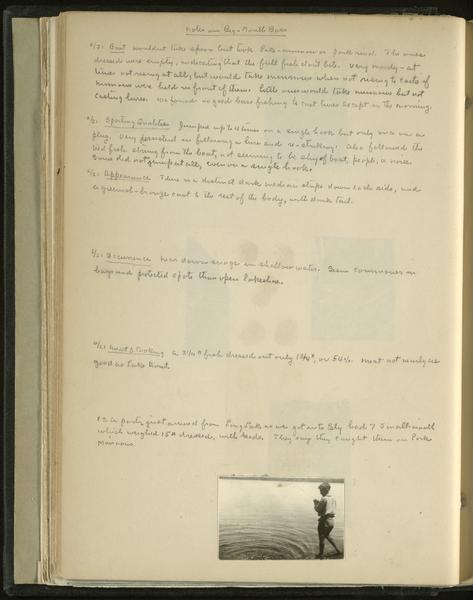 Notes on Big-Mouth Bass
Bait wouldn't take spoon but took fake-minnow or pork rind. The ones
dressed were empty, indicating that the full fish don't bite. Very moody - at
times not rising at all, but would take minnows when not rising to casts if
minnow were held in front of them. Little ones would take minnows but not
casting lures. We found no good bass fishing to cast lures except in the morning.
Sporting Qualities Jumped up to 4 times on a single hook but only once on a
plug. Very persistent in following a lure and re-striking. Also followed the
tied fish string from the boat, not seeming to be shy of boat, people, or noise.
Some did not jump at all, even on a single hook.
Appearance There is a distinct dark median stripe down each side, and
a greenish-bronze cast to the rest of the body, with dark tail.
Occurrence Was down seage in shallow water. Seem commoner in
bays and protected spots than open lakeshore.
Meat & Cooking A fish dressed out only or 56%. Meat not nearly as
good as Lake trout.
P.S. A party just arrived from Long Lake as we got into Ely had 7 Small-mouth
which weighed 15# dressed, with heads. They say they caught them on Pork
minnows.